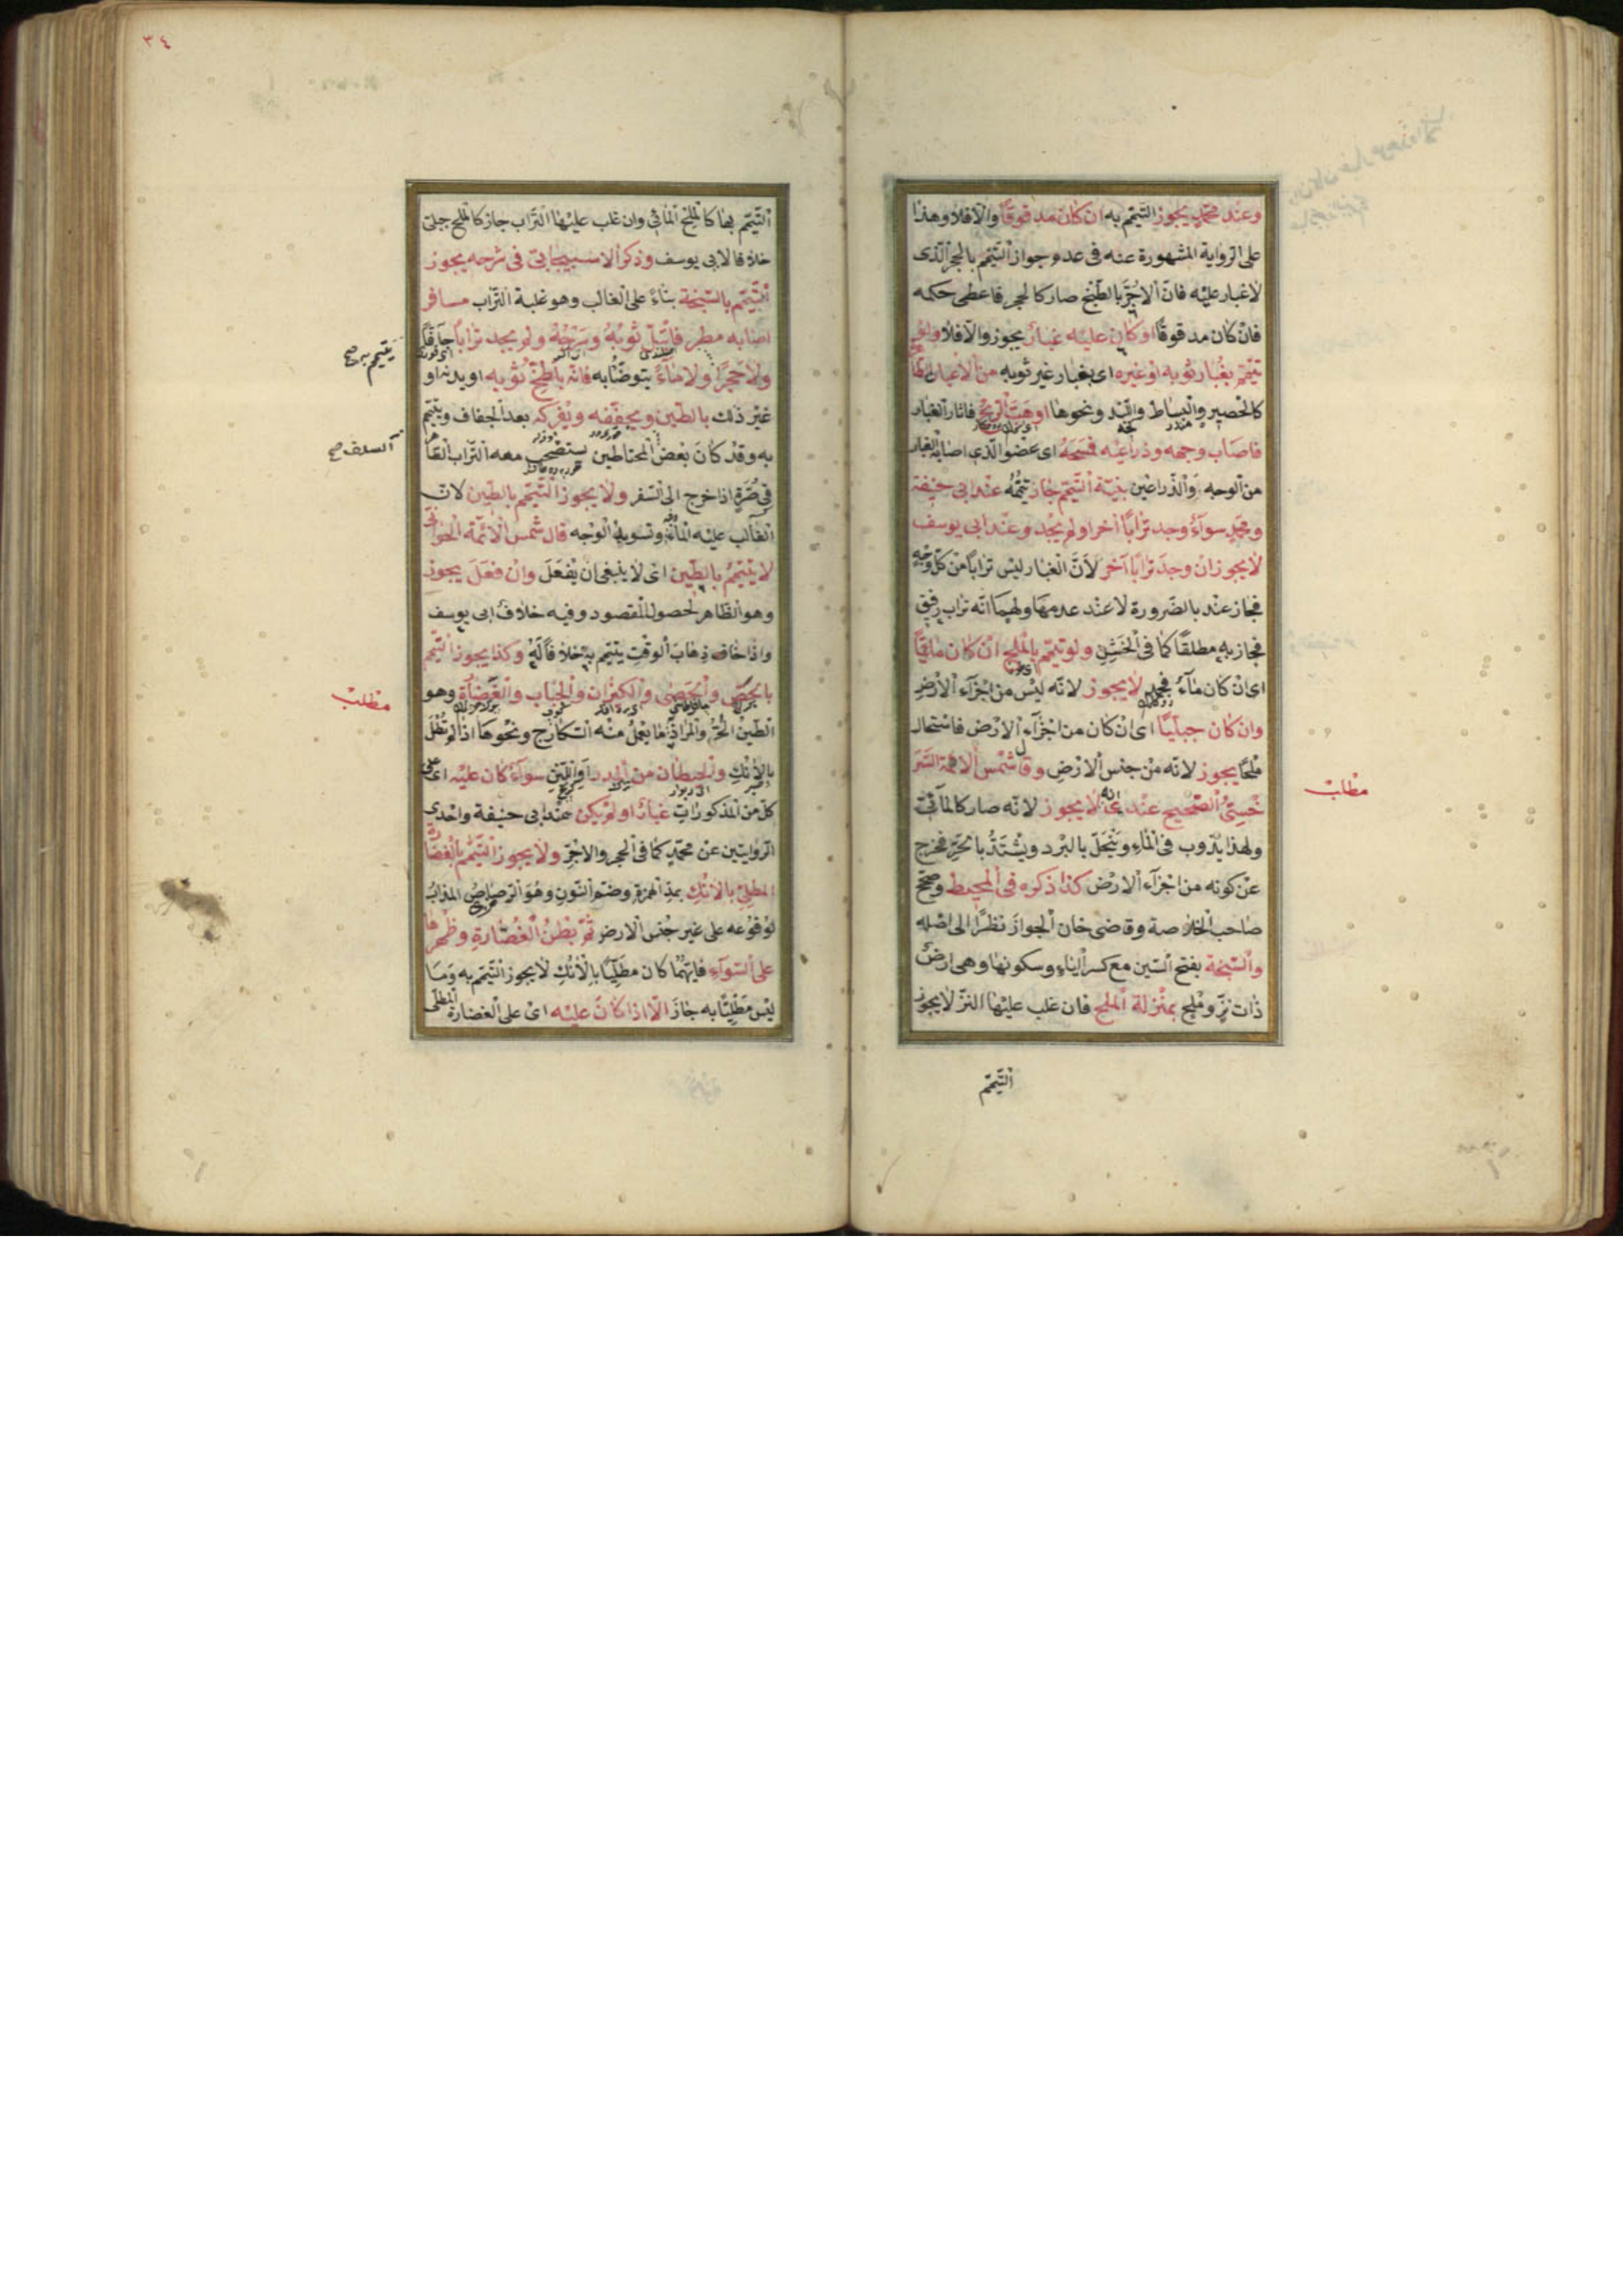 وعند محمّد يجوز التيمّم به ان كان مدقوقًا والّا فلا وهذا
على الرواية المشهورة عنه فى عدم جواز التيمّم بالحجر الّذى
لا غبار عليه فانّ الاجرّ بالطبخ صار كالحجر فاعطى حكمه
فان كان مدقوقًا او كان عليه غبار يجوز والّا فلا ولو
تيمّم بغبار ثوبه او غيره اى بغبار غير ثوبه من الاعيان
كالحصير والبساط واللّبد ونحوها او هبّت الريح فاثار الغبار
فاصاب وجهه وذراعيه فمسحه اى عضو الّذى اصابه الغبار
من الوجه والذّراعين بنيّة التيمّم جاز تيمّمه عند ابى حنيفة
ومحمّد سواء وجد ترابًا آخر او لم يجد وعند ابى يوسف
لا يجوز ان وجد ترابًا آخر لانّ الغبار ليس ترابًا من كلّ وجه
فجاز عند بالضّرورة لا عند عدمها ولهما انّه تراب رقيق
فجاز به مطلقًا كما فى الخشن ولو تيمّم بالملح ان كان مائيًّا
اى ان كان ماء فجمد لا يجوز لانّه ليس من اجزآء الارض
وان كان جبليًّا اى ان كان من اجزآء الارض فاستحال
ملحًا يجوز لانّه من جنس الارض وقال شمس الائمّة السّر
خسىّ الصّحيح عندى انه لا يجوز لانّه صار كالمآئى
ولهذا يذوب فى الماء وينحلّ بالبرد ويشتدّ بالحرّ فخرج
عن كونه من اجزآء الارض كذا ذكره فى المحيط وصحّح
صاحب الخلاصة وقاضى خان الجواز نظرًا الى اصله
والسّبخة بفتح السّين مع كسر الباء وسكونها وهى ارض
ذات نزّ وملح بمنزلة الملح فان غلب عليها النزّ لا يجوز
التيمّم
مطلب
٣٤
التيمّم بها كالملح المائى وان غلب عليها التّراب جاز كالملح جبلى
خلافا لابى يوسف وذكر الاسبيجابىّ فى شرحه يجوز
التيمّم بالسّبخة بناءً على الغالب وهو غلبة التّراب مسافر
اصابه مطر فابتلّ ثوبه وسرجه ولم يجد ترابًا جافًّا
ولا حجرًا ولا مآءً يتوضّأ به فانّه يلطّخ ثوبه او بدنه او
غير ذلك بالطّين ويجفّفه ويفركه بعد الجفاف ويتيمّم
به وقد كان بعض المحتاطين يستصحب معه التّراب
فى صرّة اذا خرج الى السّفر ولا يجوز التيمّم بالطّين لانّ
الغالب عليه المآء وتسويد الوجه قال شمس الائمّة الحلوانى
لا يتيمّم بالطّين اى لا ينبغى ان يفعل وان فعل يجوز
وهو الظاهر لحصول المقصود وفيه خلاف ابى يوسف
واذا خاف ذهاب الوقت يتيمّم به خلافًا له وكذا يجوز التيمّم
بالجصّ والحصى والكيزان والحباب والغضارة وهو
الطّين الحرّ والمراد ما يعمل منه السّكارج ونحوها اذا لم تطل
بالآنك والحيطان من المدر او اللّبن سوآء كان عليه اى على
كلّ من المذكورات غبار او لم يكن عند ابى حنيفة واحدى
الرّوايتين عن محمّد كما فى الحجر والاجرّ ولا يجوز التيمّم بالغضارة
المطلىّ بالآنك بمدّ الهمزة وضمّ النّون وهو الرّصاص المذاب
لوقوعه على غير جنس الارض ثمّ بطن الغضارة وظهرها
على السّوآء فايّهما كان مطليًّا بالآنك لا يجوز التيمّم به وما
ليس مطليًّا به جاز الّا اذا كان عليه اى على الغضارة المطلىّ
يتيمم به صح
السلف صح
مطلب